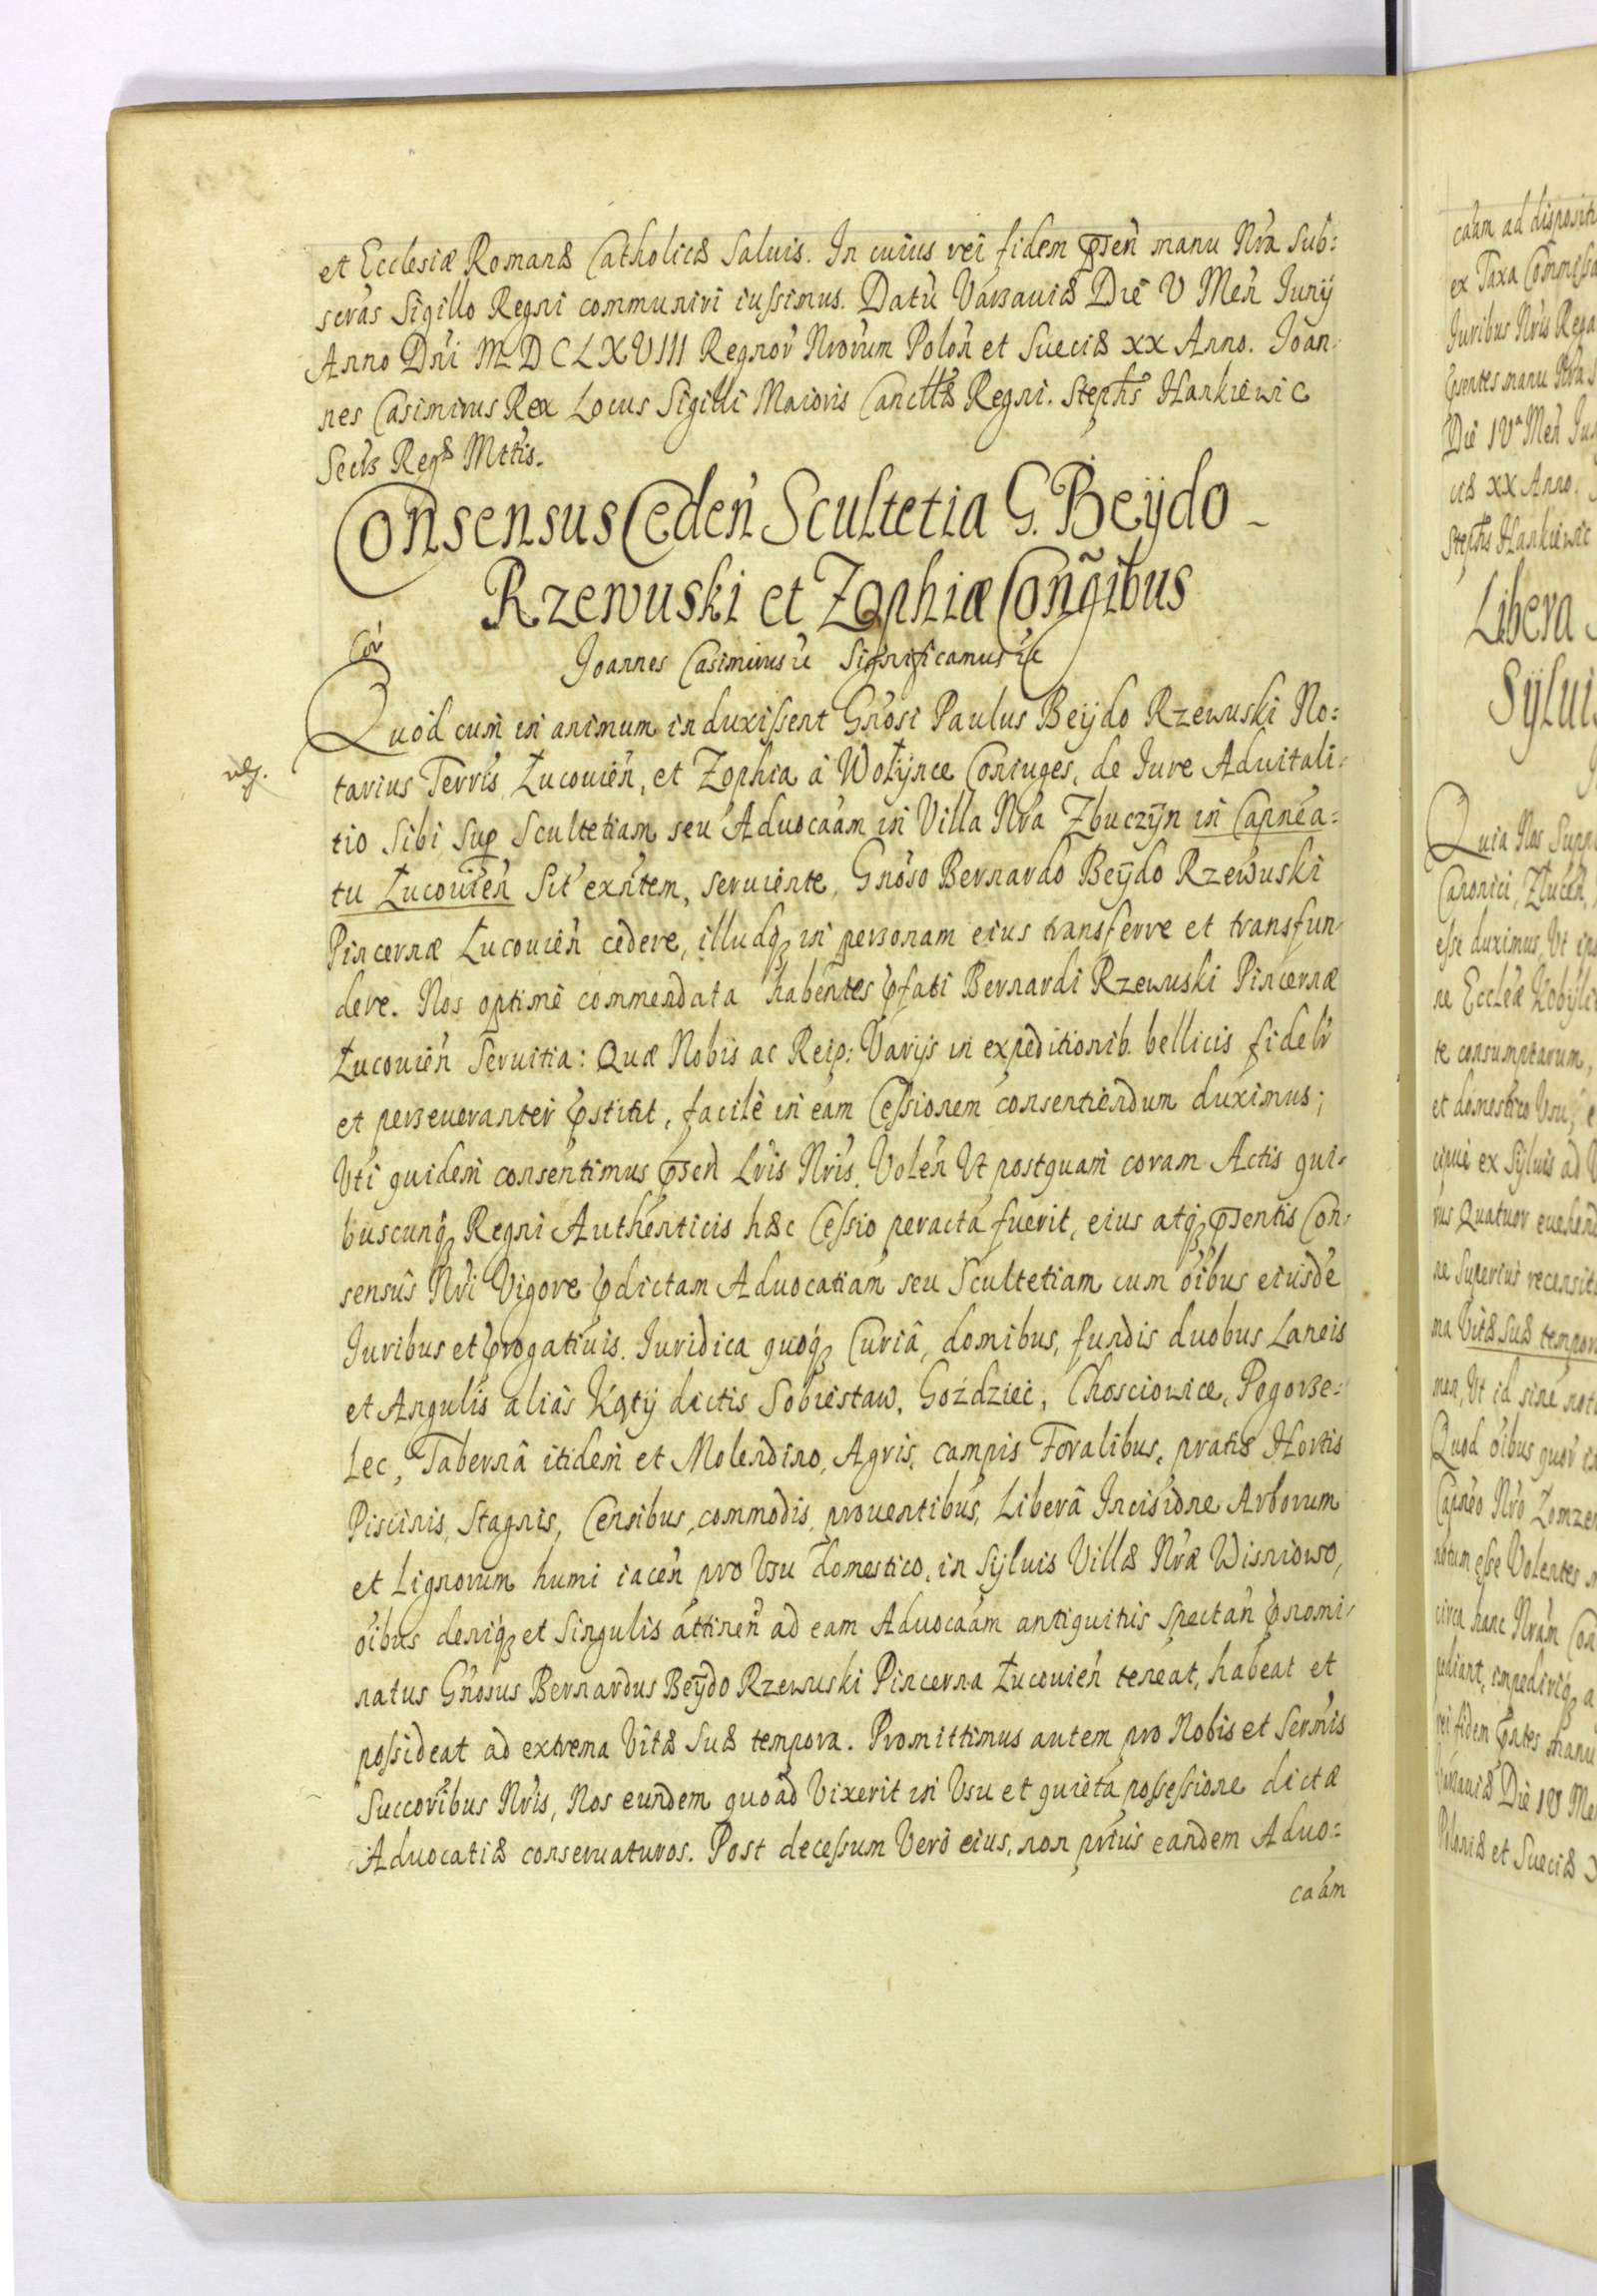 et Ecclesiæ Romanæ Catholicæ Saluis. In cuius rei fidem p̄sen̄ manu Nr̄a Sub:
scras Sigillo Regni communiri iussimus. Datū Varsauiæ Die V Men̄ Iunÿ
Anno Dn̄i MDCLXVIII Regnor̄ Nrōrum Polon̄ et Sueciæ XX Anno. Joan-
nes Casimirus Rex Locus Sigilli Maioris Cancllæ Regni. Stephs Hankiewic
Secr̄s Regæ Mttis.
Consensus Ceden̄ Scultetia G. Beÿdo -
Rzewuski et Zophiæ Con̄gibus
Cor̄
Joannes Casimirus &c Significamus &c
Quod cum in animum induxissent Gn̄osi Paulus Beÿdo Rzewuski No:
tarius Terris Łucouien̄, et Zophia à Wołÿnce Coniuges, de Iure Aduitali-
tio Sibi Sup Scultetiam seu Aduocaām in Villa Nr̄a Zbuczÿn in Capnēa:
tu Łucouien̄ Sit̄ exn̄tem, seruiente, Gn̄oso Bernardo Beÿdo Rzewuski
Pincernæ Łucouien̄ cedere, illudq; in personam eius transferre et transfun-
dere. Nos optimè commendata habentes p̄fati Bernardi Rzewuski Pincernæ
Łucouien̄ Seruitia: Quæ Nobis ac Reip: Varijs in expeditionib. bellicis fidelr̄
et perseueranter p̄stitit, facilè in eam Cessionem consentiendum duximus;
Vti quidem consentimus p̄sen̄ Lr̄is Nr̄is. Volen̄ Vt postquam coram Actis qui-
buscunq; Regni Authenticis hæc Cessio peracta fuerit, eius atq; p̄sentis Con-
sensûs Nr̄i Vigore p̄dictam Aduocatiam seu Scultetiam cum oībus eiusdē
Iuribus et p̄rogatiuis. Iuridica quoq; Curiâ, domibus, fundis duobus Laneis
et Angulis aliâs Kątÿ dictis Sobiesław, Goździeć, Chosciowice, Pogorze:
Lec, Tabernâ itidem et Molendino, Agris, campis Foralibus, pratis Hortis
Piscinis, Stagnis, Censibus, commodis, prouentibus, Liberâ Incisione Arborum
et Lignorum humi iacen̄ pro Vsu domestico, in Sÿluis Villæ Nr̄æ Wisniowo,
oībus deniq; et Singulis attinen̄ ad eam Aduocaām antiquitus spectan̄ p̄nomi-
natus Gn̄osus Bernardus Beÿdo Rzewuski Pincerna Łucouien̄ teneat, habeat et
possideat ad extrema Vitæ Suæ tempora. Promittimus autem pro Nobis et Serm̄is
Succoribus Nr̄is, Nos eundem quoad Vixerit in Vsu et quieta possessione dictæ
Aduocatiæ conseruaturos. Post decessum Verò eius, non priùs eandem Aduo:
caām
caām ad dispositi
ex Taxa Commissa
Iuribus Nr̄is Rega
p̄sentes manu Nr̄a S
Die IVa Men̄ Iu
ciæ XX Anno.
Stephs Hankiewic
Libera
Sÿlui
Quia Nos Supp
Canonici
esse duximus, Vt ip
ne Eccleæ Kobÿli
te consumptarum,
et domestico Vsu,
cipuè ex Sÿluis ad
rus Quatuor euehend
ne Superius recensit
ma Vitæ Suæ tempor
men, Vt id sine not
Quod oībus quor̄
Capnēo Nr̄o Łomzen
notum esse Volentes
circa hanc Nr̄am Con
pediant, impediriq; a
rei fidem p̄ntes manu
Varsauiæ Die IV Me
Poloniæ et Sueciæ X